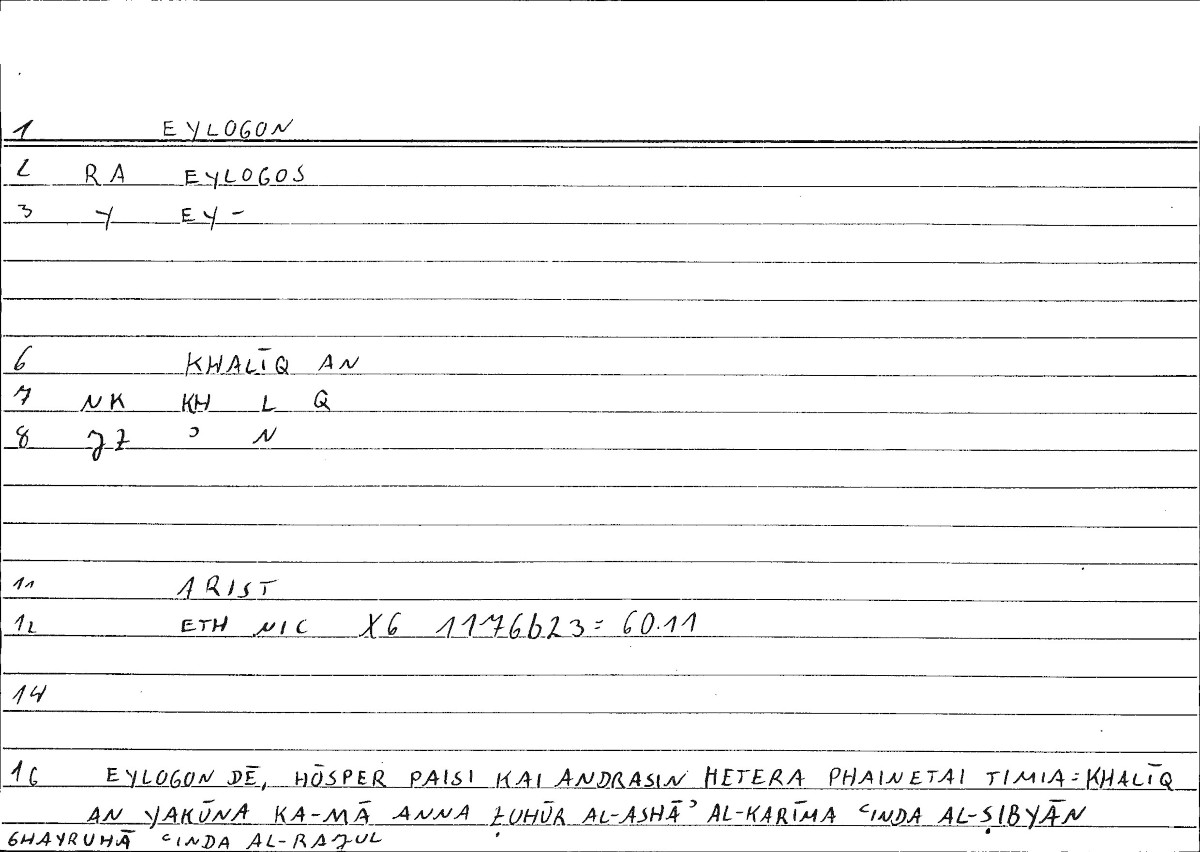 1 EYLOGON
2 RA EYLOGOS
3 Y EY-
6 KHALĪQ AN
7 NK KH L Q
8 JZ ʾ N
11 ARIST
12 ETH NIC X6 1176b23 = 60.11
14
16 EYLOGON DĒ, HŌSPER PAISI KAI ANDRASIN HETERA PHAINETAI TIMIA = KHALĪQ
AN YAKŪNA KA-MĀ ANNA ẒUHŪR AL-ASHĀʾ AL-KARĪMA ʿINDA AL-ṢIBYĀN
GHAYRUHĀ ʿINDA AL-RAJUL